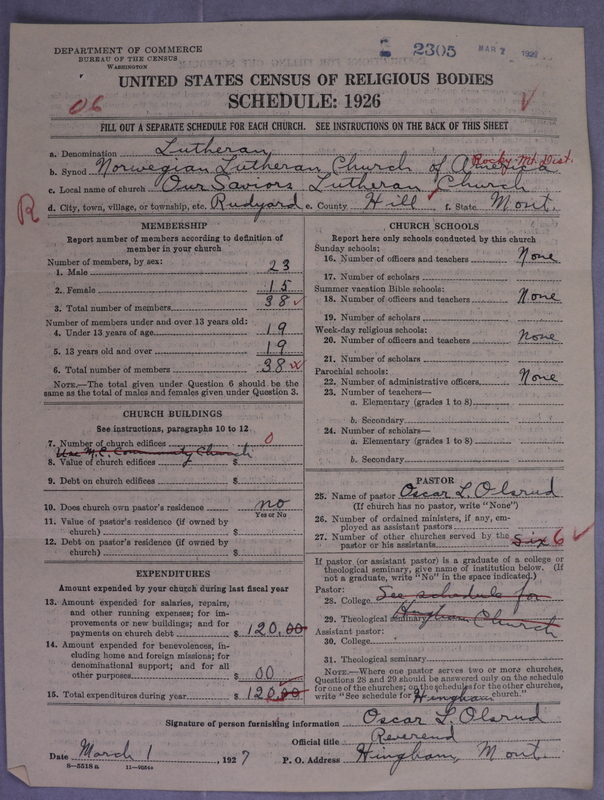 DEPARTMENT OF COMMERCE
BUREAU OF THE CENSUS
WASHINGTON
2305 MAR 7 192
UNITED STATES CENSUS OF RELIGIOUS BODIES
06
SCHEDULE: 1926
FILL OUT A SEPARATE SCHEDULE FOR EACH CHURCH. SEE INSTRUCTIONS ON THE BACK OF THIS SHEET
a. Denomination Lutheran
Rocky Mt. Dist.
b. Synod Norwegian Lutheran Church of America
c. Local name of church Our Saviors Lutheran Church
R
d. City, town, village, or township, etc. Rudyard e. County Hill f. State Mont.
MEMBERSHIP
Report number of members according to definition of
member in your church
Number of members, by sex:
1. Male 23
2. Female 15
3. Total number of members 38
Number of members under and over 13 years old:
4. Under 13 years of age 19
5. 13 years old and over 19
6. Total number of members 38
NOTE.—The total given under Question 6 should be the
same as the total of males and females given under Question 3.
CHURCH BUILDINGS
See instructions, paragraphs 10 to 12
7. Number of church edifices 0
Use M.E. Community Church
8. Value of church edifices $
9. Debt on church edifices $
10. Does church own pastor's residence no
Yes or No
11. Value of pastor's residence (if owned by
church) $
12. Debt on pastor's residence (if owned by
church) $
EXPENDITURES
Amount expended by your church during last fiscal year
13. Amount expended for salaries, repairs,
and other running expenses; for im-
provements or new buildings; and for
payments on church debt $ 120.00
14. Amount expended for benevolences, in-
cluding home and foreign missions; for
denominational support; and for all
other purposes $ 00
15. Total expenditures during year $ 120.00
CHURCH SCHOOLS
Report here only schools conducted by this church
Sunday schools:
16. Number of officers and teachers None
17. Number of scholars
Summer vacation Bible schools:
18. Number of officers and teachers None
19. Number of scholars
Week-day religious schools:
20. Number of officers and teachers None
21. Number of scholars
Parochial schools:
22. Number of administrative officers None
23. Number of teachers—
a. Elementary (grades 1 to 8)
b. Secondary
24. Number of scholars—
a. Elementary (grades 1 to 8)
b. Secondary
PASTOR
25. Name of pastor Oscar L. Olsrud
(If church has no pastor, write "None")
26. Number of ordained ministers, if any, em-
ployed as assistant pastors
27. Number of other churches served by the
pastor or his assistants Six 6
If pastor (or assistant pastor) is a graduate of a college or
theological seminary, give name of institution below. (If
not a graduate, write "No" in the space indicated.)
Pastor:
28. College See schedule for
29. Theological seminary Hingham Church
Assistant pastor:
30. College
31. Theological seminary
NOTE.—Where one pastor serves two or more churches,
Questions 28 and 29 should be answered only on the schedule
for one of the churches; on the schedules for the other churches,
write "See schedule for Hingham church."
Signature of person furnishing information Oscar L. Olsrud
Official title Reverend
Date March 1, 1927 P. O. Address Hingham, Mont
8—5518a